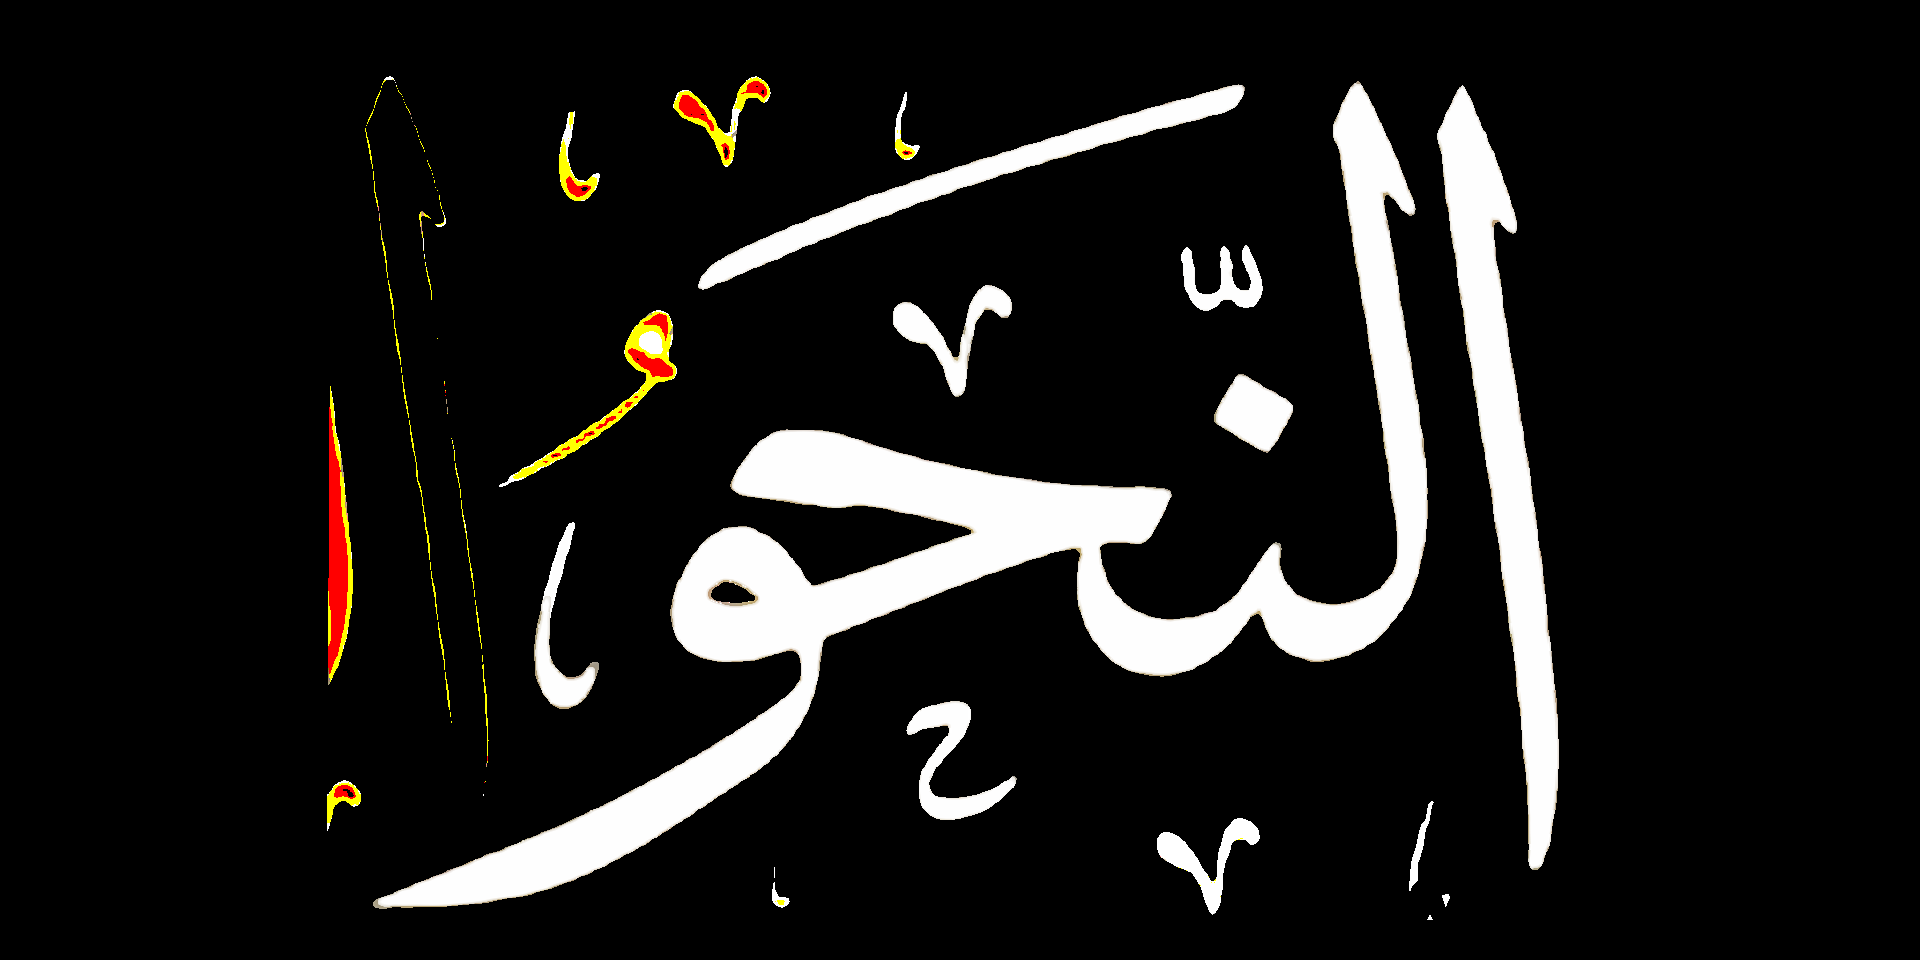 النحو